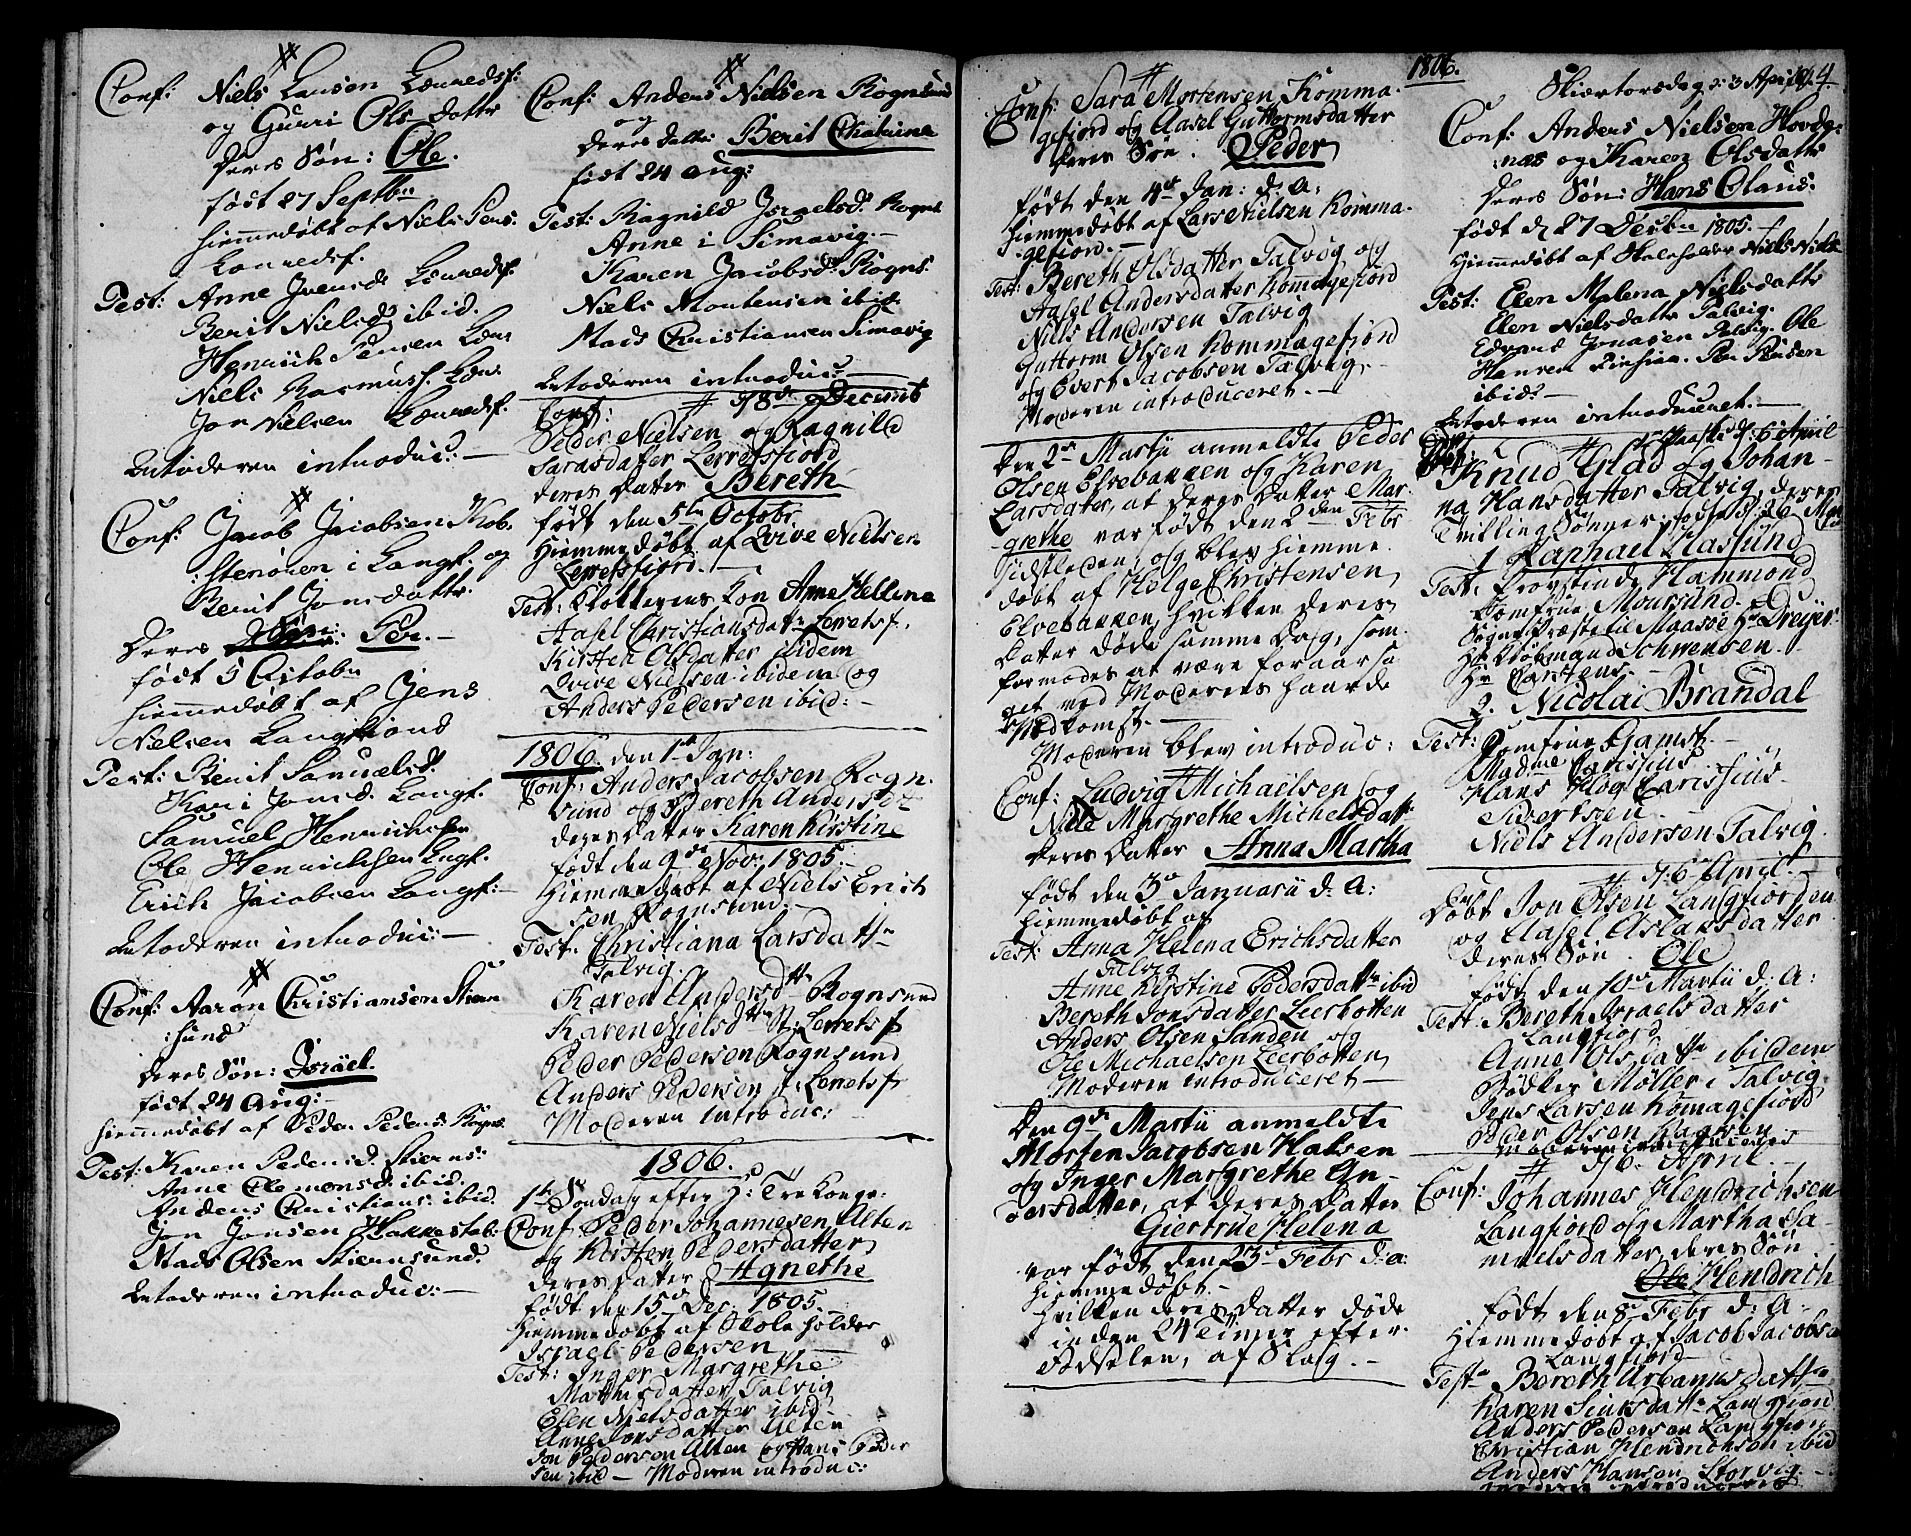 Conf: Niels Larsen Lerredsf:
og Gurri Ols Datter
Deres Søn: Ole.
født 27 Septbr
hiemmedøbt af Niels Jens.
Lerredsf.
Test: Anne Jvensd Lerredsf.
Berit Nielsd ibid.
Henrich Jensen Ler
Niels Rasmuss. Ler.
Jon Nielsen Lerredsf.
Moderen introduc:
Conf: Jacob Jacobsen Kob.
sterøren i Langf. og
Berit Jonsdatter.
Deres Søn: Per.
født 5 Octobr
hiemmedøbt af Jens
Nielsen Langfiord
Test: Berit Samuelsd.
Kari Jonsd. Langf.
Samuel Henrichsen
Ole Henrichsen Langf.
Erich Jacobsen Langf:
Moderen introduc:
Conf: Aaron Christiansen Stiern
sund
Deres Søn: Israel.
født 24 Aug:
hiemmedøbt af Peder Peders: Rogns.
Test: Karen Pedersd. Stierns:
Anne Clemensd. ibid.
Anders Christians: ibid.
Jon Jonsen Hakkestab:
Mads Olsen Stiernsund.
Moderen introduc:
Conf: Anders Nielsen Rognsund
og
Deres Datter: Berit Chatrine
født 24 Aug:
Test: Ragnild Israelsd. Rogns
Anne i Simavig.
Karen Jacobsd. Rogns.
Niels Mortensen ibid.
Mads Christiansen Simavig
Moderen introduc:
d 8de Decembr
Conf:
Peder Nielsen og Ragnild
Sarasdatter Lerretsfiord
deres Datter Bereth
født den 5te Octobr
Hiemmedøbt af Qvive Nielsen
Lerretsfiord.
Test: Klokkerens Kon Anne Hellene
Aasel Christiansdatr Lerretsf.
Kirsten Olsdatter ibidem
Qvive Nielsen ibidem og
Anders Pedersen ibid:
1806. den 1ste Jan:
Conf: Anders Jacobsen Rogn.
sund og Bereth Andersdtr
deres Datter Karen Kirstine
født den 9de Nov: 1805.
Hiemmedøbt af Niels Erich
sen Rognsund.
Test: Christiana Larsdattr
Talvig.
Karen Andersdttr Rognsund
Karen Nielsdttr St: Lerretsf
Peder Pedersen Rognsund
Anders Pedersen St. Lerretsf
Moderen introduc:
1806.
1ste Søndag efter H: Tre Konge:
Conf Peder Johannesen Alten
og Kirsten Pedersdatter
deres Datter Agnethe
født den 15d Dec: 1805.
Hiemmedøbt af Skoleholder
Israel Pedersen
Test: Inger Margrethe
Matthisdatter Talvig
Elen Nielsdatter ibid
Anne Jonsdatter Alten
Jon Pedersen Alten og Hans Peder
sen ibid – Moderen introduc:
1806.
Conf: Sara Mortensen Komma-
gefiord og Aasel Guttormsdatter
deres Søn. Peder
født den 4de Jan: d: A:
Hiemmedøbt af Lars Nielsen Komma-
gefiord.
Test: Bereth Olsdatter Talvig og
Aasel Andersdatter Kommagefiord
Niils Andersen Talvig
Guttorm Olsen Kommagefiord
og Evert Jacobsen Talvig.
Moderen introduceret.
Den 2de Martii anmeldte Peder
Olsen Elvebakken og Karen
Larsdatter, at deres Datter Mar-
grethe var født den 2den Febr
sidstleden, og blev hiemme
døbt af Helge Christensen
Elvebakken, hvilken deres
Datter døde samme Dag, som
formodes at være foraarsa
get ved Moderens haarde
Nedkomst.
Moderen blev introduc:
Conf: Ludvig Michaelsen og
Nille Margrethe Michelsdatr
deres Datter Anna Martha
født den 3de Januarii d: A:
hiemmedøbt af
Test: Anna Helena Erichsdatter
Talvig
Anne Kirstine Pedersdattr ibid
Bereth Jonsdatter Leerbotten
Anders Olsen Sanden og
Ole Michaelsen Leerbotten
Moderen introduceret
Den 9de Martii anmeldte
Morten Jacobsen Haksen
og Inger Margrethe An-
dersdatter, at deres Datter
Giertrue Helena
var født den 23d Febr d: a:
hiemmedøbt.
hvilken deres Datter døde
inden 24 Timer efter
Fødselen, af Slag.
Skiertorsdag d: 3 April 4
Conf: Anders Nielsen Hovdg:
næs og Karen Olsdattr
Deres Søn: Hans Olaus.
født d 27 Decbr 1805.
Hiemmedøbt af Skoleholder Niels Niels
Test: Elen Malena Nielsdattr
Elen Nielsdattr Talvig.
Edvard Jonasen Talvig. Ole
Hansen
ibid.
Moderen introduceret.
1ste Paaske d: 6 April
Conf:
Knud Glad og Johan-
na Hansdatter Talvig, deres
Tvilling Sønner, fødte d: 26 Mar
1. Raphael Haslund
Test: Provstinde Hammond
Jomfrue Moursund.
Sogne Præst til Maasøe Hr Dreyer.
Hr Kiøbmand Schwensen.
Hr Carstens.
2. Nicolai Brandal
Test: Jomfrue Gamst.
Madme Carisius
Hans Høeg Carissius.
Sivertsen.
Niels Andersen Talvig.
d 6 April.
Døbt Jon Olsen Langfiorden
og Aasel Aslaksdatter
deres Søn. Ole
født den 10de Martii d: A:
Test. Bereth Israelsdatter
Langfiord
Anne Olsdattr ibidem
Bødker Møller i Talvig.
Jens Larsen Komagefiord
Peder Olsen Kagsen
Moderen introduceres
d 6. April
Conf: Johannes Hendrichsen
Langfiord og Martha Sa-
muelsdatter, deres Søn
Ole Hendrich
født den 8de Febr d: A:
Hiemmedøbt af Jacob Jacobsen
Langfiord
Test. Bereth Urbanusdattr
Karen Siursdattr Langfiord
Anders Pedersen Langfiord
Christian Hendrichsen ibid
Anders Hansen Storvig.
Moderen introduceret